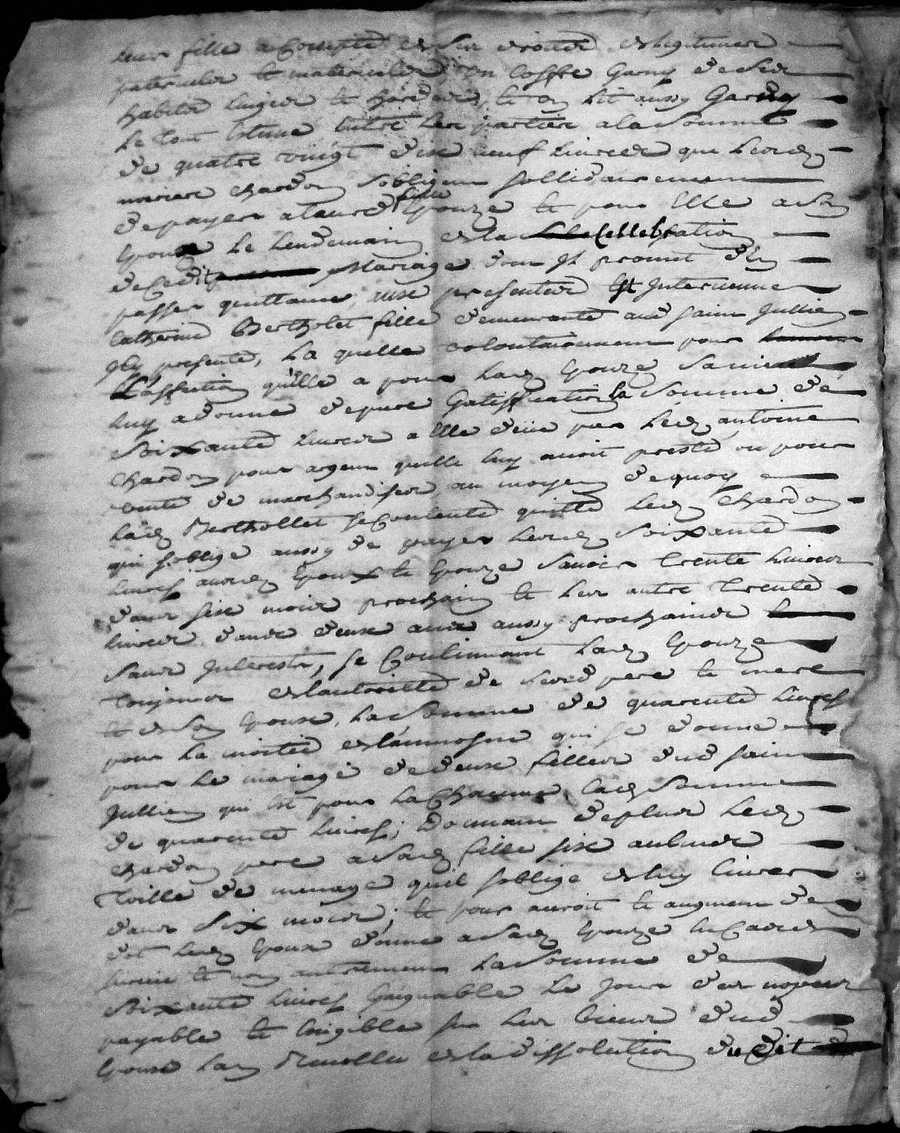 leur fille a Compte de ses droitz legitimere
paternelle et maternelle un Coffre Garny de ses
habitz linger et et un lit aussy Garny
le tout estime entre les parties a la Somme
de quatre vingt dix neuf livres que lesdz
mariez chardon sobligent sollidairement
de payer a laditte fille Epouze et pour Elle a son
Epoux le lendemain de la Cellebration
de Cedit Mariage dont Jl promet den
passer quittance, aux presentes Est Jntervenue
Catherine Bertholet fille demeurante aud saint Jullien
Jcy presente, la quelle volontairement pour
Laffection quelle a pour lad Epouze sa niece
luy a donne de pure Gratiffication la Somme de
Soixante livres a Elle deüe par ledz antoine
chardon pour argent quelle luy avoit presté ou pour
vente de marchandises, au moyen de quoy
ladz Berthollet se Contente quitte ledz chardon
qui soblige aussy de payer lesdz Soixante
livres auxdz Epoux et Epouze Savoir trente livres
dans six mois prochain et les autres trente
livres dans deux ans aussy prochaines
sans Jnterests, se Constituant ladz Epouze
toujours de lautorité de sesd pere et mere
et de son Epoux, la Somme de quarente livres
pour la moitié de laumosne qui se donne
pour le mariage de deux filles dud saint
Jullien qui est pour la Chacune, ladz Somme
de quarente livres; Donnant de plus ledz
chardon pere a sadz fille six aulnes
Toille de menage quil soblige de luy livrer
dans Six mois; et pour auroit et augment de
dot ledz Epoux donne a sadz Epouze En Cas de
survie et non autrement la Somme de
Soixante livres Gaignable le jour des nopces
payable et Exigible sur les biens dud
Epoux lan Revollu de la dissolution du dit